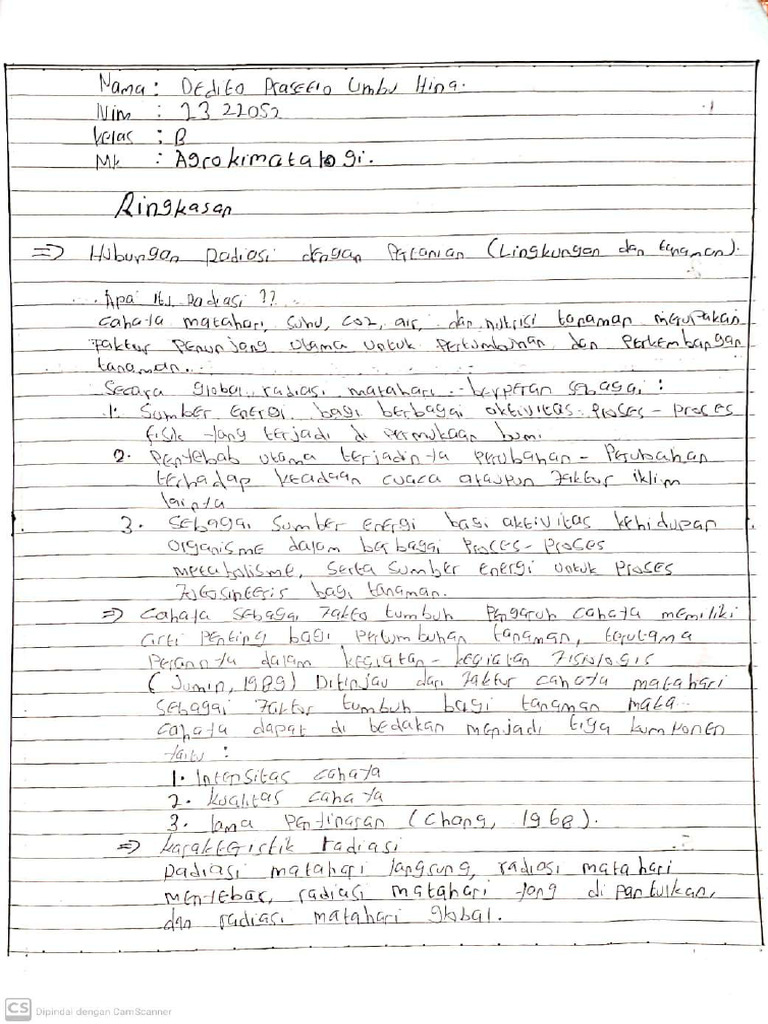 Nama : Dedito Prasetio Umbu Hina.
Nim : 2322052
Kelas : B
Mk : Agrokimatalogi.
Ringkasan
=> Hubungan Radiasi dengan Pertanian (Lingkungan dan tanaman).
Apa itu Radiasi ??
cahaya matahari, suhu, CO2, air, dan nutrisi tanaman merupakan
faktur Penunjang utama untuk Pertumbuhan dan Perkembangan
tanaman.
Secara global radiasi matahari berperan sebagai :
1. Sumber Energi bagi berbagai aktivitas Proses - Proces
fisik yang terjadi di Permukaan bumi.
2. Penyebab utama terjadinya Perubahan - Perubahan
terhadap keadaan cuaca ataupun faktur iklim
lainya
3. Sebagai Sumber energi bagi aktivitas kehidupan
Organisme dalam berbagai Proces - Proses
metabolisme, Serta Sumber energi untuk Proses
Fotosinteris bagi tanaman.
=> Cahaya Sebagai Fakto tumbuh Pengaruh cahaya memiliki
arti Penting bagi Pertumbuhan tanaman, terutama
Perannya dalam kegiatan - kegiatan Fisiologis
(Jumin, 1989) Ditinjau dari Faktur cahaya matahari
sebagai Faktur tumbuh bagi tanaman maka
cahaya dapat di bedakan menjadi tiga kumponen
Yaitu :
1. Intensitas cahaya
2. kualitas cahaya
3. lama Penyinaran (Chang, 1968).
=> karakteristik radiasi
Radiasi matahari langsung, radiasi matahari
menyebar, radiasi matahari yang di pantulkan,
dan radiasi matahari global.
CS Dipindai dengan CamScanner